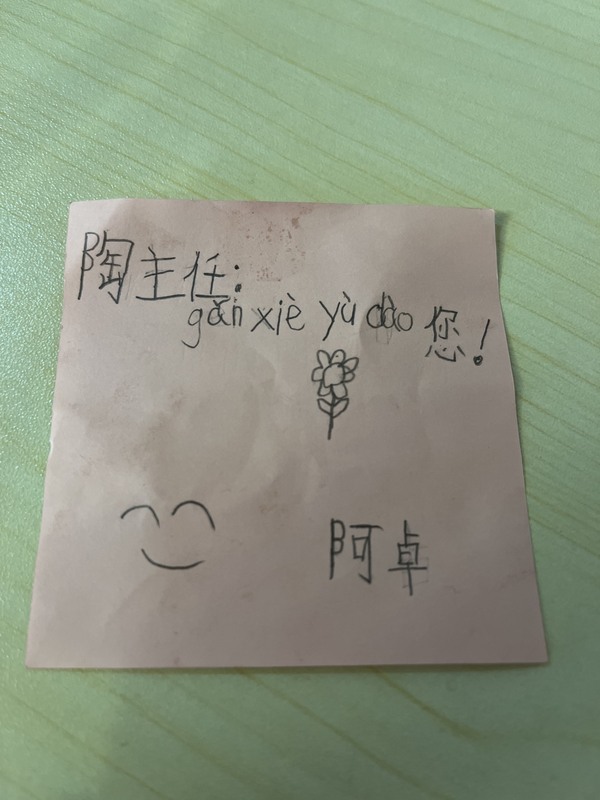 陶主任：
gǎn xiè yù dào 您！
阿卓